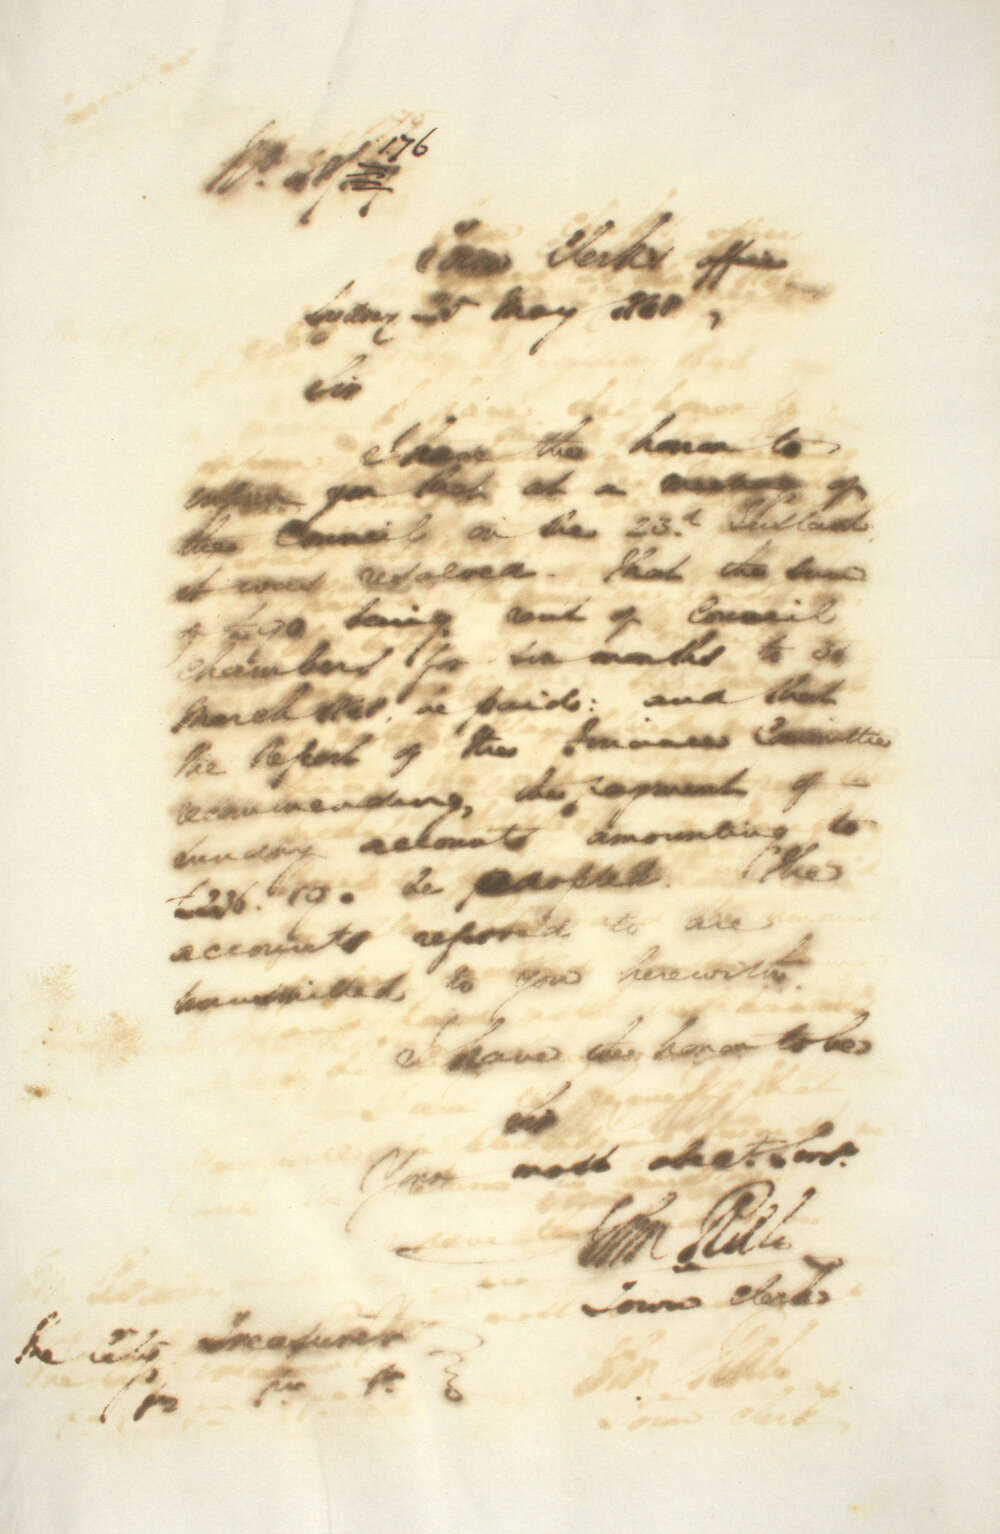 176
Town Clerks office
Sydney 25 May 1868,
Sir
I have the honor to
inform you that at a meeting of
the Council on the 23.d Instant
it was resolved. That the sum
of being rent of Council
Chambers for six months to 31
March 1868 be paid: and that
the Report of the Finance Committee
recommending the payment of
sundry accounts amounting to
be adopted. The
accounts referred to are
transmitted to you herewith.
I have the honor to be
Sir
Your most obedt. Servt.
Town Clerk
The City Treasurer
&c &c &c